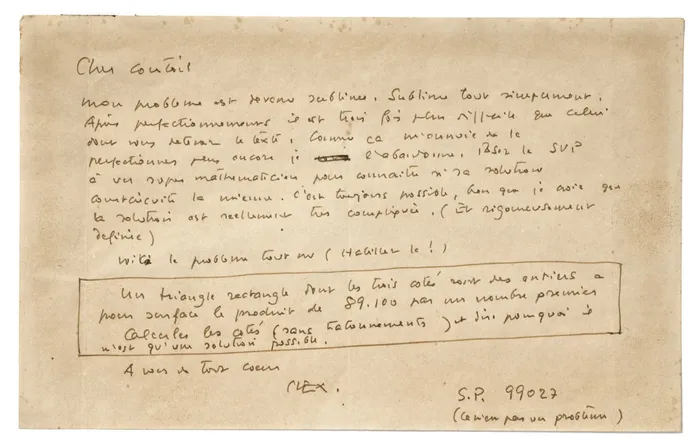 Cher coutois
mon problème est devenu sublime. Sublime tout simplement.
Après perfectionnements il est trois fois plus difficile que celui
dont vous detenez le texte. Comme ça m'ennuie de le
perfectionner plus encore je l'abandonne. posez le SVP
à vos super mathématiciens pour connaitre si sa solution
la mienne. C'est toujours possible, bien que je crois que
la solution est reellement très compliquée. (Et rigoureusement
definie)
le problème tout nu (Habillez le !)
Un triangle rectangle dont les trois cotés sont des entiers a
pour surface le produit de 89.100 par un nombre premier
Calculez les cotés (sans tatonnements) et dire pourquoi il
n'est qu'une solution possible.
A vous de tout coeur
S.P. 99027
(ce n'est pas un problème)